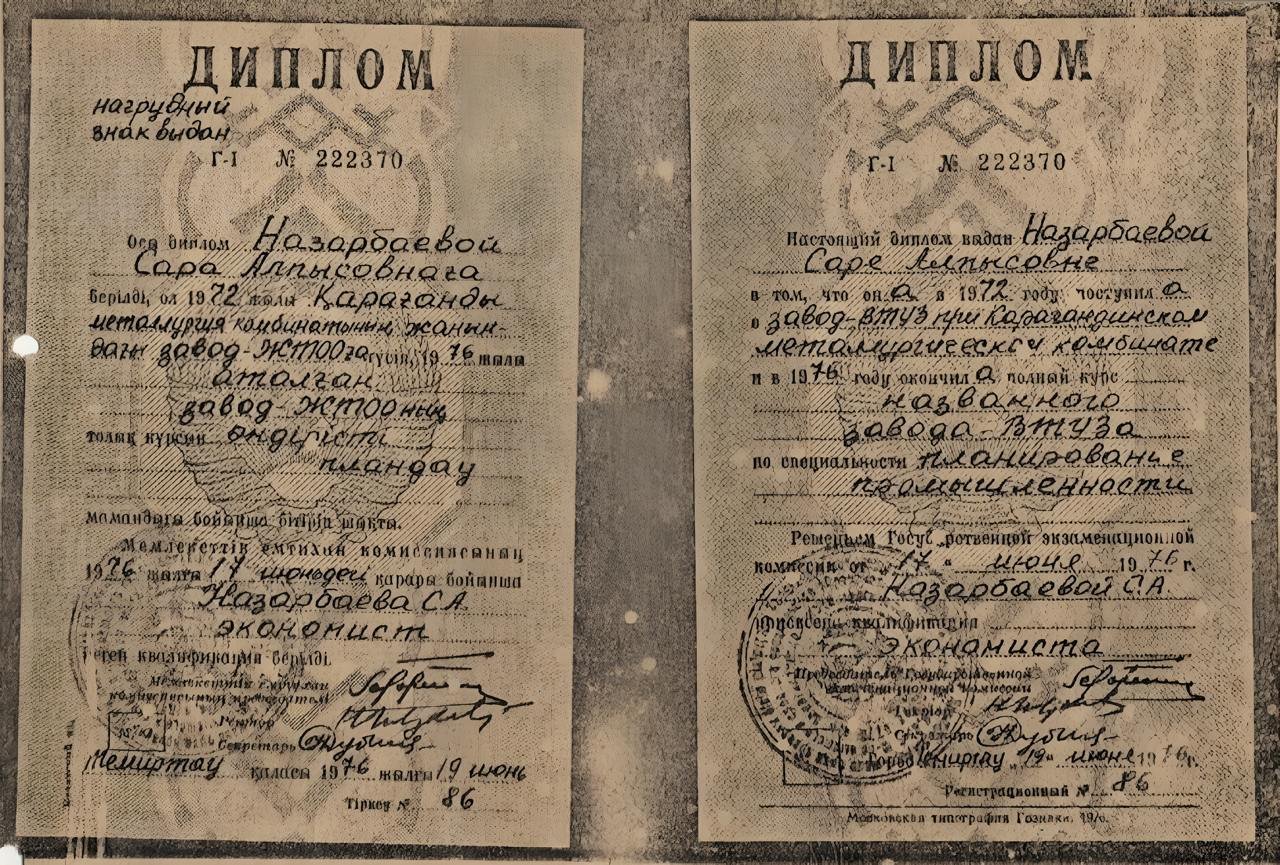 ДИПЛОМ
нагрудный
знак выдан
Г-I № 222370
Осы диплом Назарбаевой
Сара Алпысовнаға
берілді, ол 1972 жылы Қарағанды
металлургия комбинатының жанын-
дағы завод-ЖТОО-ға түсіп, 1976 жылы
аталған
завод-ЖТОО-ның
толық курсын өндірісті
пландау
мамандығы бойынша бітіріп шықты.
Мемлекеттік емтихан комиссиясының
1976 жылғы 17 июньдегі қарары бойынша
Назарбаева С.А.
экономист
деген квалификация берілді.
Мемлекеттік емтихан
комиссиясының председателі
Ректор
Секретарь
Теміртау қаласы 1976 жылғы 19 июнь
Тіркеу № 86
ДИПЛОМ
Г-I № 222370
Настоящий диплом выдан Назарбаевой
Саре Алпысовне
в том, что она в 1972 году поступила
в завод-ВТУЗ при Карагандинском
металлургическом комбинате
и в 1976 году окончила полный курс
названного
завода-ВТУЗа
по специальности планирование
промышленности
Решением Государственной экзаменационной
комиссии от "17" июня 1976 г.
Назарбаевой С.А.
присвоена квалификация
экономиста
Председатель Государственной
экзаменационной комиссии
Ректор
Секретарь
Город Темиртау "19" июня 1976 г.
Регистрационный № 86
Московская типография Гознака. 197